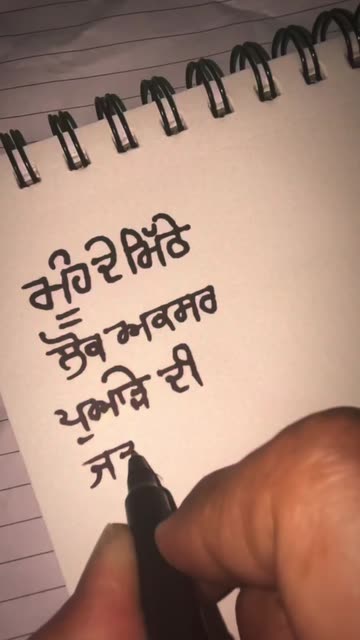 ਮੂੰਹ ਦੇ ਮਿੱਠੇ
ਲੋਕ ਅਕਸਰ
ਪੁਆੜੇ ਦੀ
ਜੜ